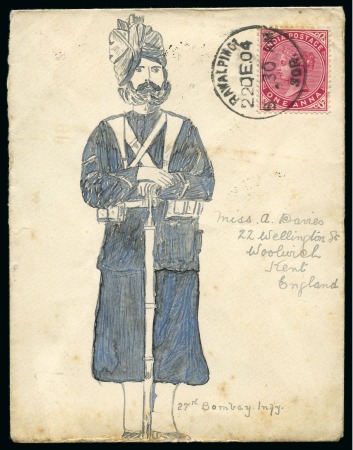 RAWALPINDI
22 DE.04
INDIA POSTAGE
ONE ANNA
Miss. A. Davies
22 Wellington St
Woolwich
Kent
England
27th Bombay. Infy.